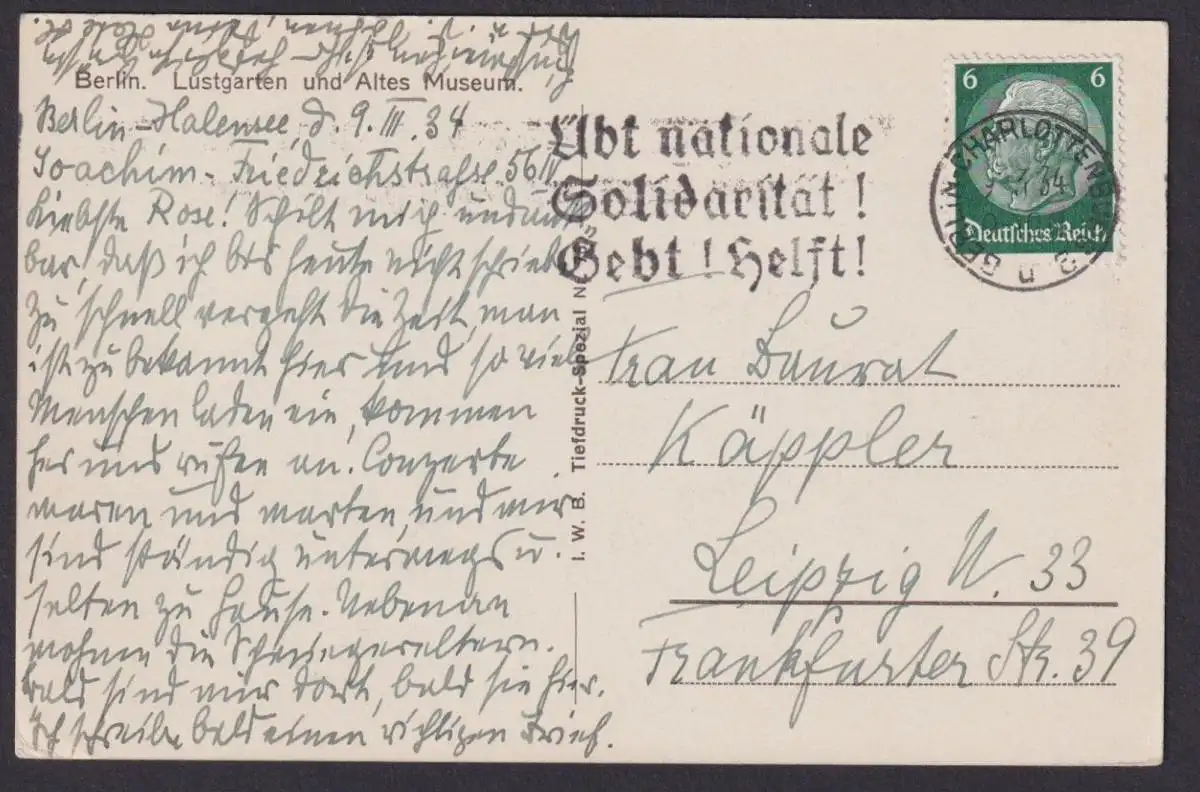 Berlin. Lustgarten und Altes Museum.
Berlin-Halensee d. 9. III. 34
Joachim-Friedrichstrasse 56 IV
Liebste Rose! Schilt mich undank
bar, daß ich bis heute nicht schrieb.
Zu schnell vergeht die Zeit, man
ist zu bekannt hier und so viel
Menschen laden ein, kommen
her und rufen an. Conzerte
waren und warten, und wir
sind ständig unterwegs u.
selten zu Hause. Nebenan
wohnen die Schwiegereltern.
Bald sind wir dort, bald sie hier.
Ich schreibe bald einen richtigen Brief.
I. W. B. Tiefdruck-Spezial
Übt nationale
Solidarität!
Gebt! Helft!
6 6
Deutsches Reich
BERLIN-CHARLOTTENBURG 2
Frau Baurat
Käppler
Leipzig W. 33
Frankfurter Str. 39